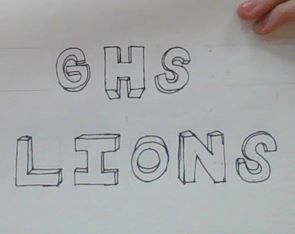 GHS
LIONS